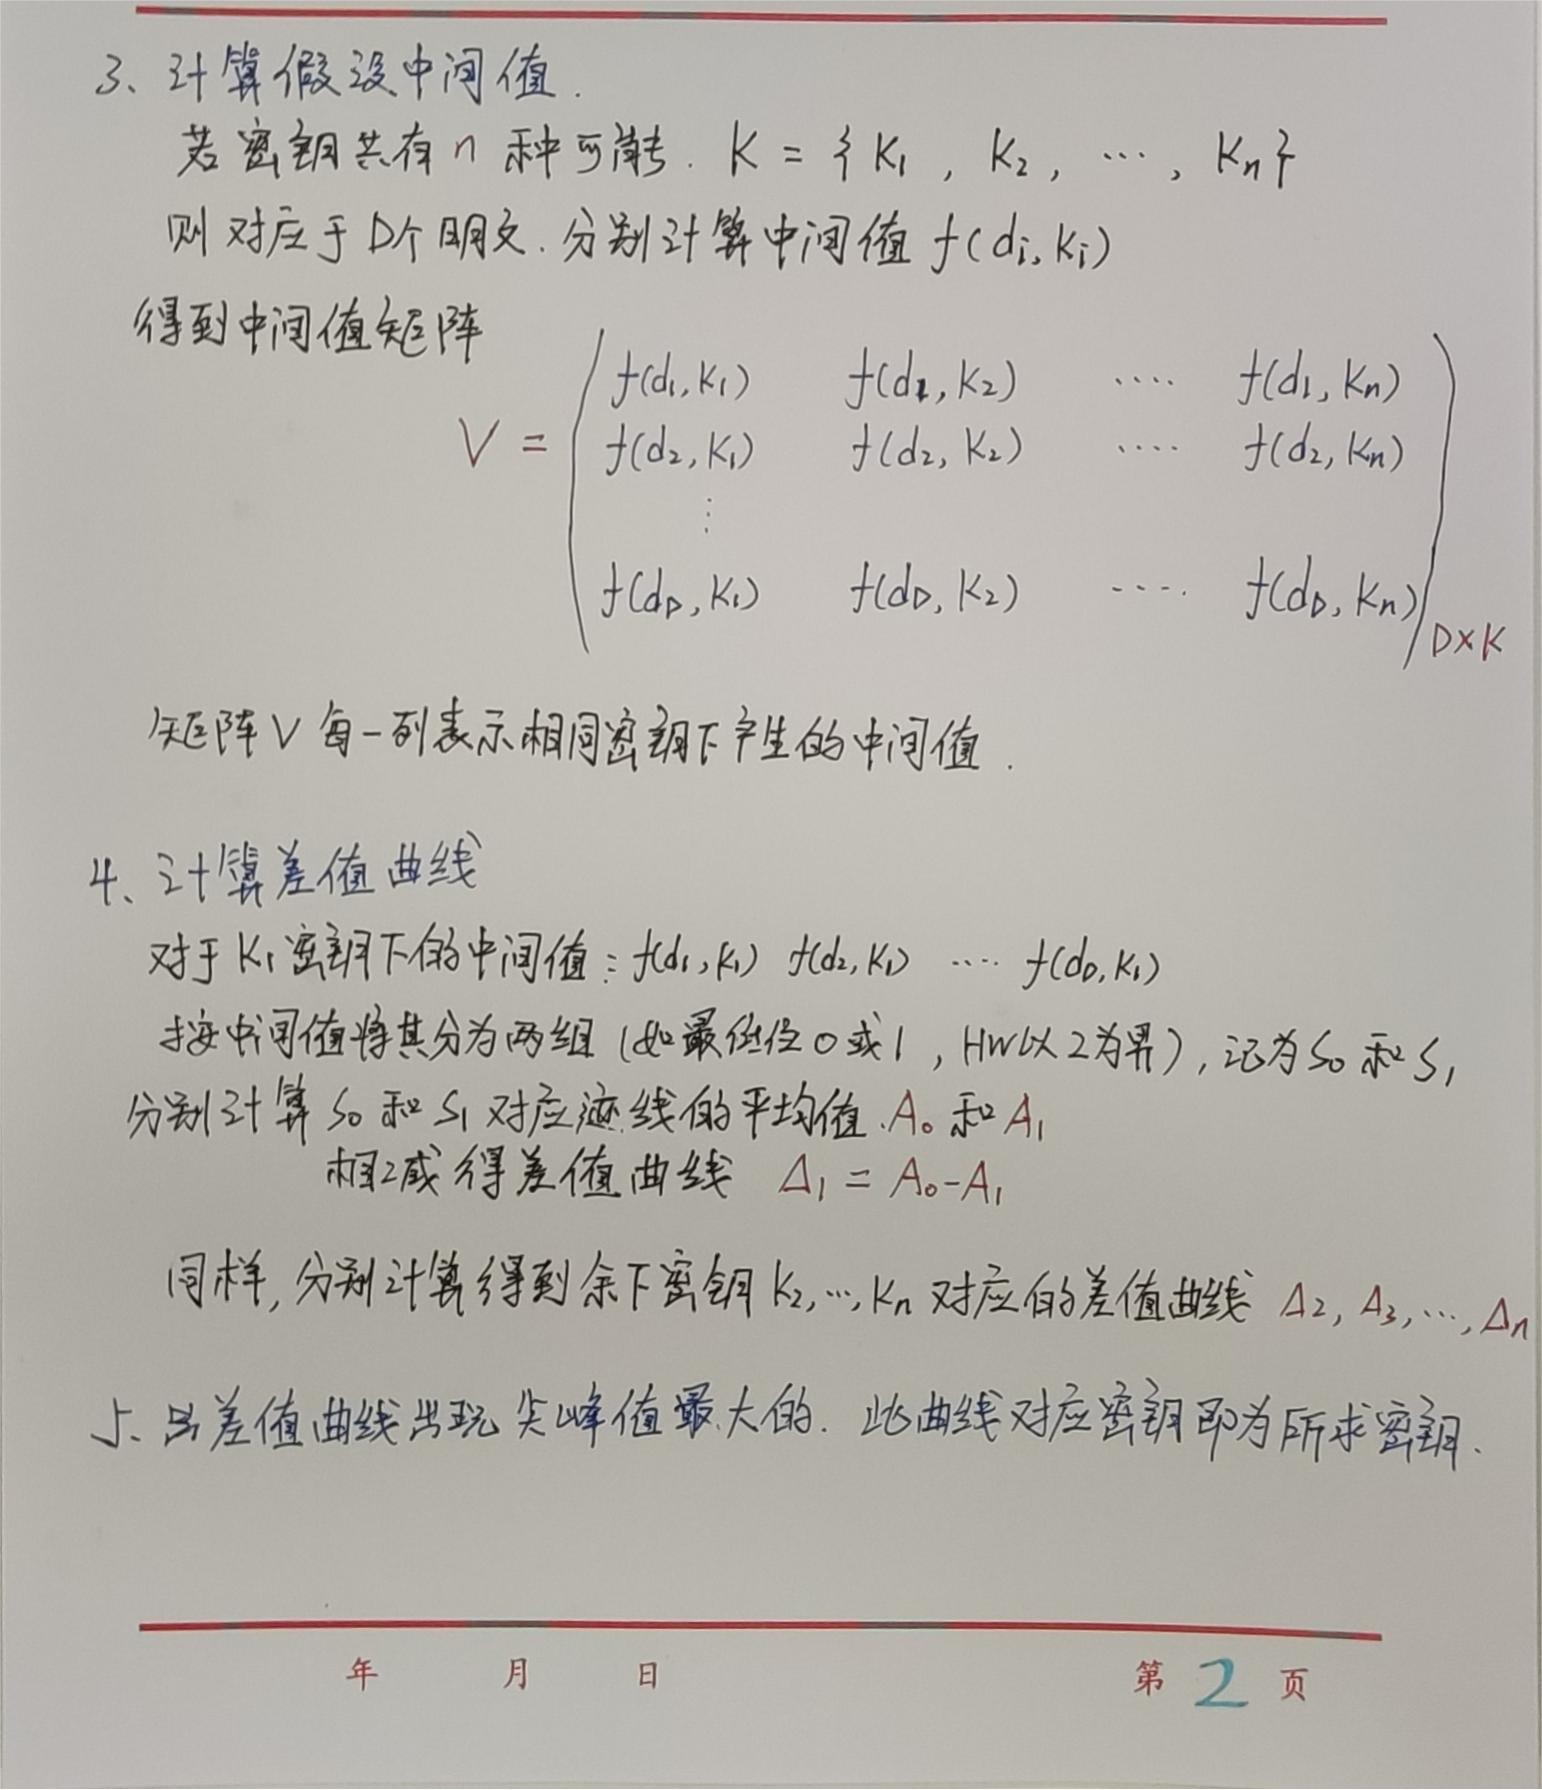 3、计算假设中间值.
若密钥共有n种可能. K = {K₁, K₂, ···, Kₙ}
则对应于D个明文.分别计算中间值 f(dᵢ, Kᵢ)
得到中间值矩阵
f(d₁,K₁) f(d₁,K₂) ···· f(d₁,Kₙ)
V = f(d₂,K₁) f(d₂,K₂) ···· f(d₂,Kₙ)
⋮
f(d_D,K₁) f(d_D,K₂) ···· f(d_D,Kₙ) D×K
矩阵V每一列表示相同密钥下产生的中间值.
4、计算差值曲线
对于K₁密钥下的中间值: f(d₁,K₁) f(d₂,K₁) ···· f(d_D,K₁)
按中间值将其分为两组(如最低位0或1,HW以2为界),记为S₀和S₁
分别计算S₀和S₁对应迹线的平均值.A₀和A₁
相减得差值曲线 Δ₁ = A₀-A₁
同样,分别计算得到余下密钥K₂,···,Kₙ对应的差值曲线 Δ₂, Δ₃, ···, Δₙ
5、差值曲线出现尖峰值最大的. 此曲线对应密钥即为所求密钥.
年 月 日 第 2 页